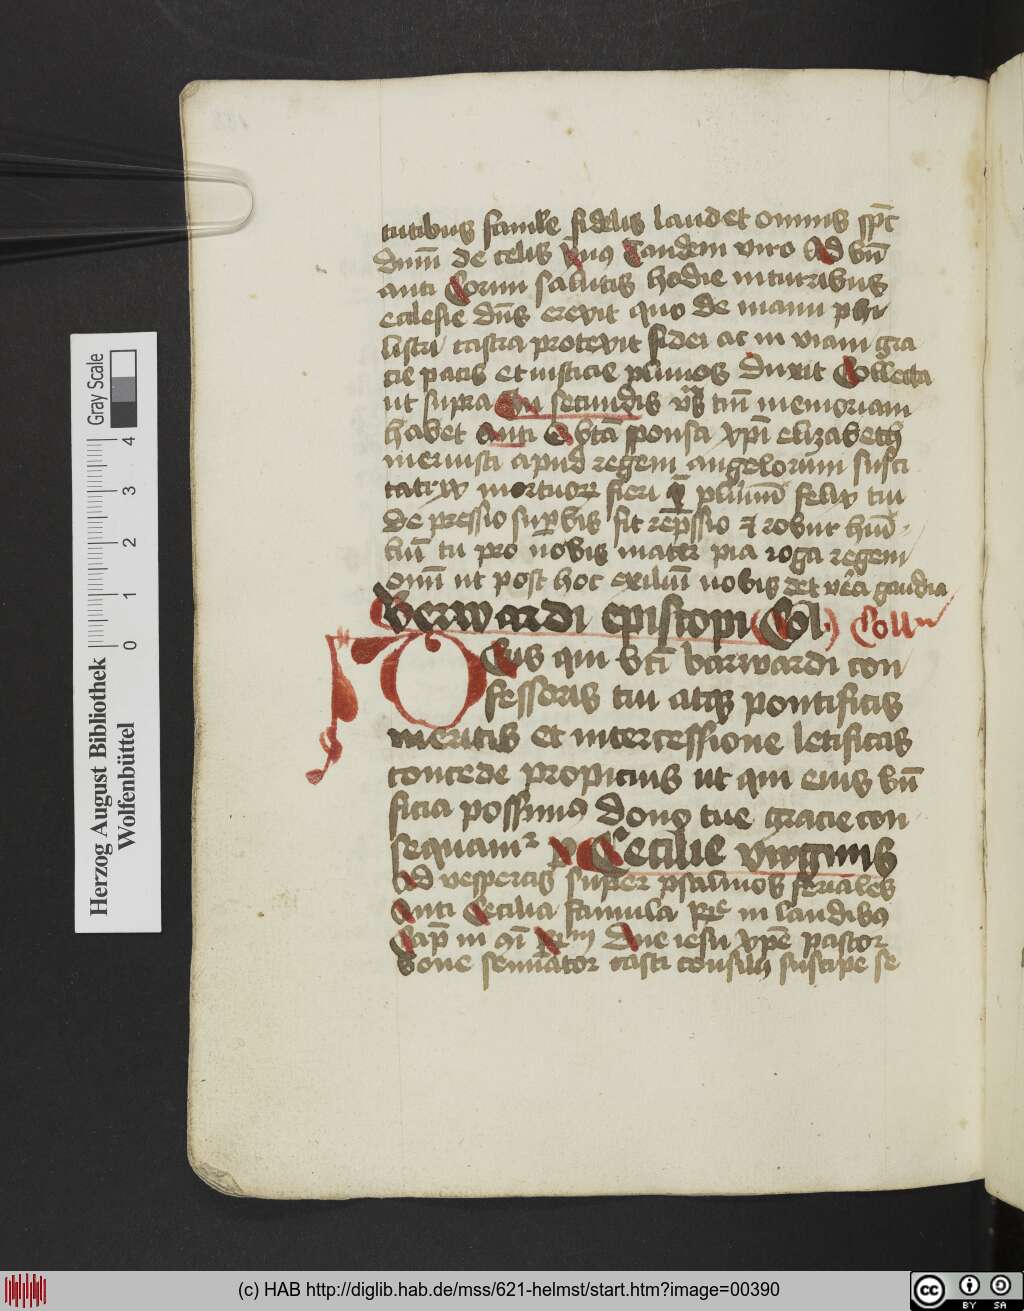 tutibus famile fidelis laudet omnis spc
dnm de celis Unus Tandem viro Ad bn
anti Cornu salutis hodie in turribus
ecclesie dns erexit quo de manu phi
listri castra protexit fidei ac in viam gra
cie pacis et iusticie plurimos Duxit Collecta
ut supra In secundis vs tui memoriam
habet Anti O bta sponsa xpi elizabeth
meruisti apud regem angelorum susci
tatrix mortuor fieri plurimum felix tu
de pressio supbis fit repssio et robur humi
bn tu pro nobis mater pia roga regem
omnium ut post hoc exilium nobis det vera gaudia
Berwardi episcopi Coll
Deus qui sci barwardi con
fessoris tui atque pontificis
meritis et intercessione letificas
concede propicius ut qui eius bn
ficia possimus dono tue gracie con
sequamur p Cecilie virginis
Ad vesperas super psalmos feriales
Anti Cecilia famula Pre in laudibus
Cap in Dne iesu xpe pastor
bone seminator casti consilii suscipe se
Gray Scale
4 3 2 1 0
Herzog August Bibliothek
Wolfenbüttel
(c) HAB http://diglib.hab.de/mss/621-helmst/start.htm?image=00390
cc BY SA